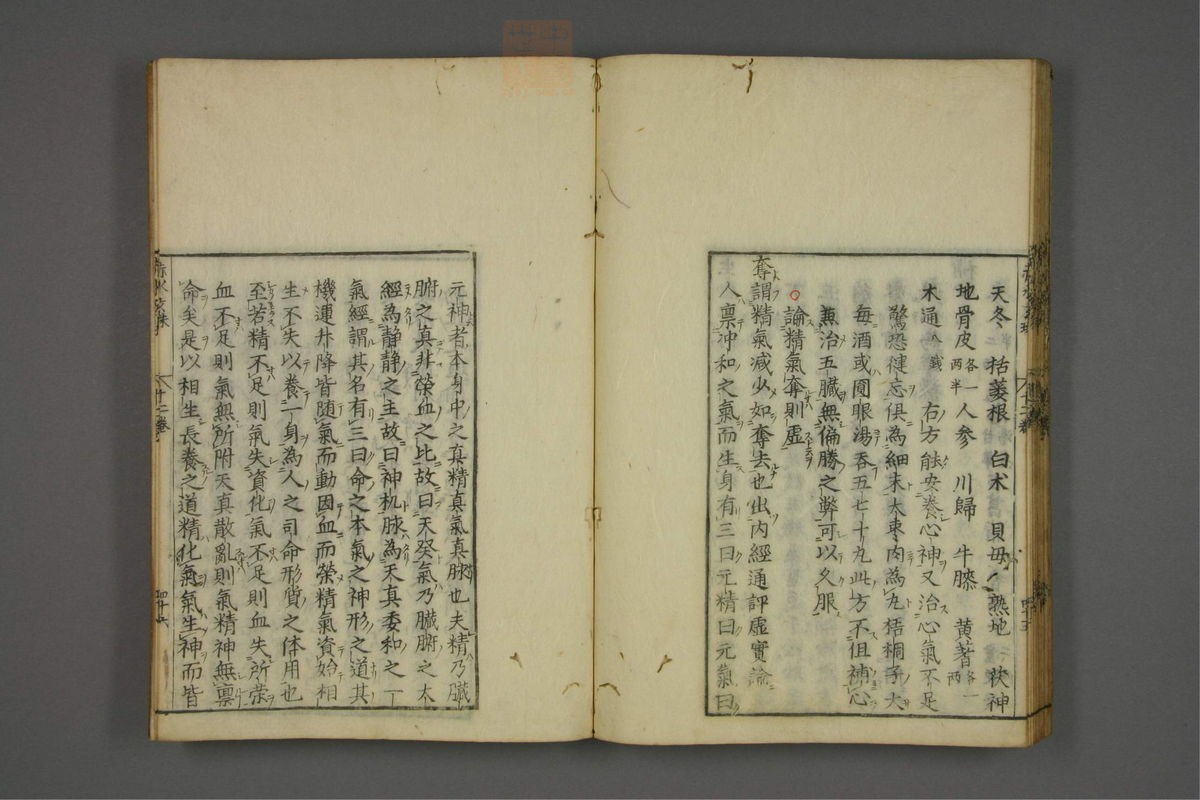 天冬　括蔞根　白术　貝母　熟地　茯神
地骨皮各一兩半　人参　川歸　牛膝　黄蓍各一兩
木通八錢　右方能安養心神又治心氣不足
驚恐健忘俱為細末大棗肉為丸梧桐子大
毎酒或圓眼湯吞五七十丸此方不但補心
兼治五臟無偏勝之弊可以久服
論精氣奪則虛
奪謂精氣减少如奪去也出内經通評虛實論
人禀冲和之氣而生身有三曰元精曰元氣曰
元神者本身中之真精真氣真脉也夫精乃臟
腑之真非榮血之比故曰天癸氣乃臟腑之太
經為静静之主故曰神机脉為天真委和之一
氣經謂其名有三曰命之本氣之神形之道其
機運升降皆随氣而動因血而榮精氣資始相
生不失以養一身為人之司命形質之体用也
至若精不足則氣失資化氣不足則血失所榮
血不足則氣無所附天真散亂則氣精神無禀
命矣是以相生長養之道精化氣氣生神而皆
十二卷